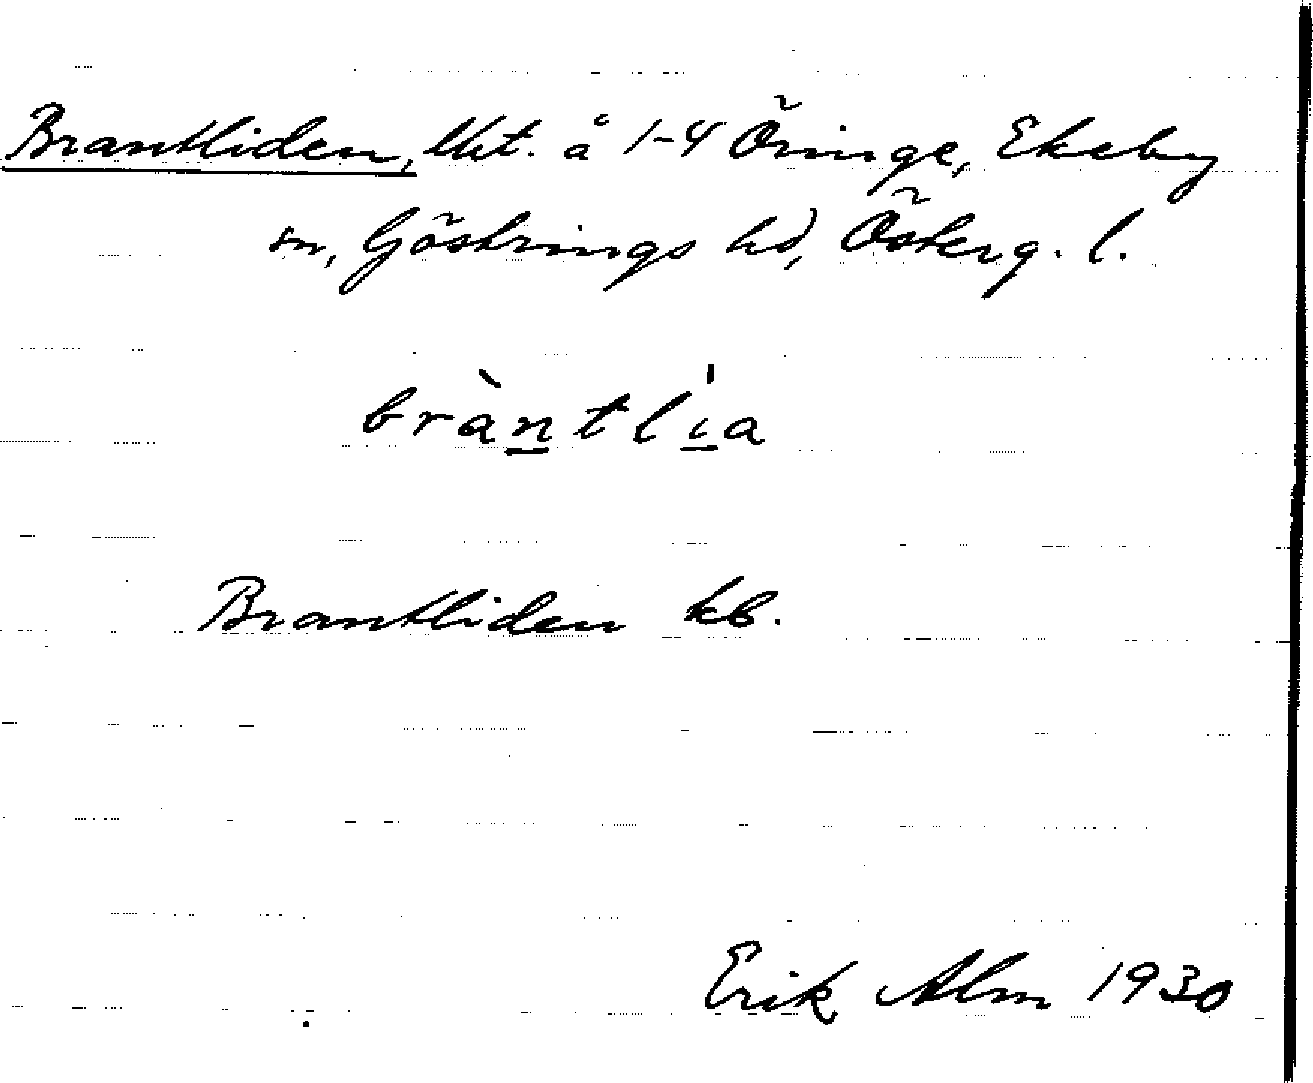 Brantliden, lht. å 1-4 Öringe, Ekeby
sn, Göstrings hd, Österg. l.
bràntlı̍a
Brantliden kb.
Erik Alm 1930